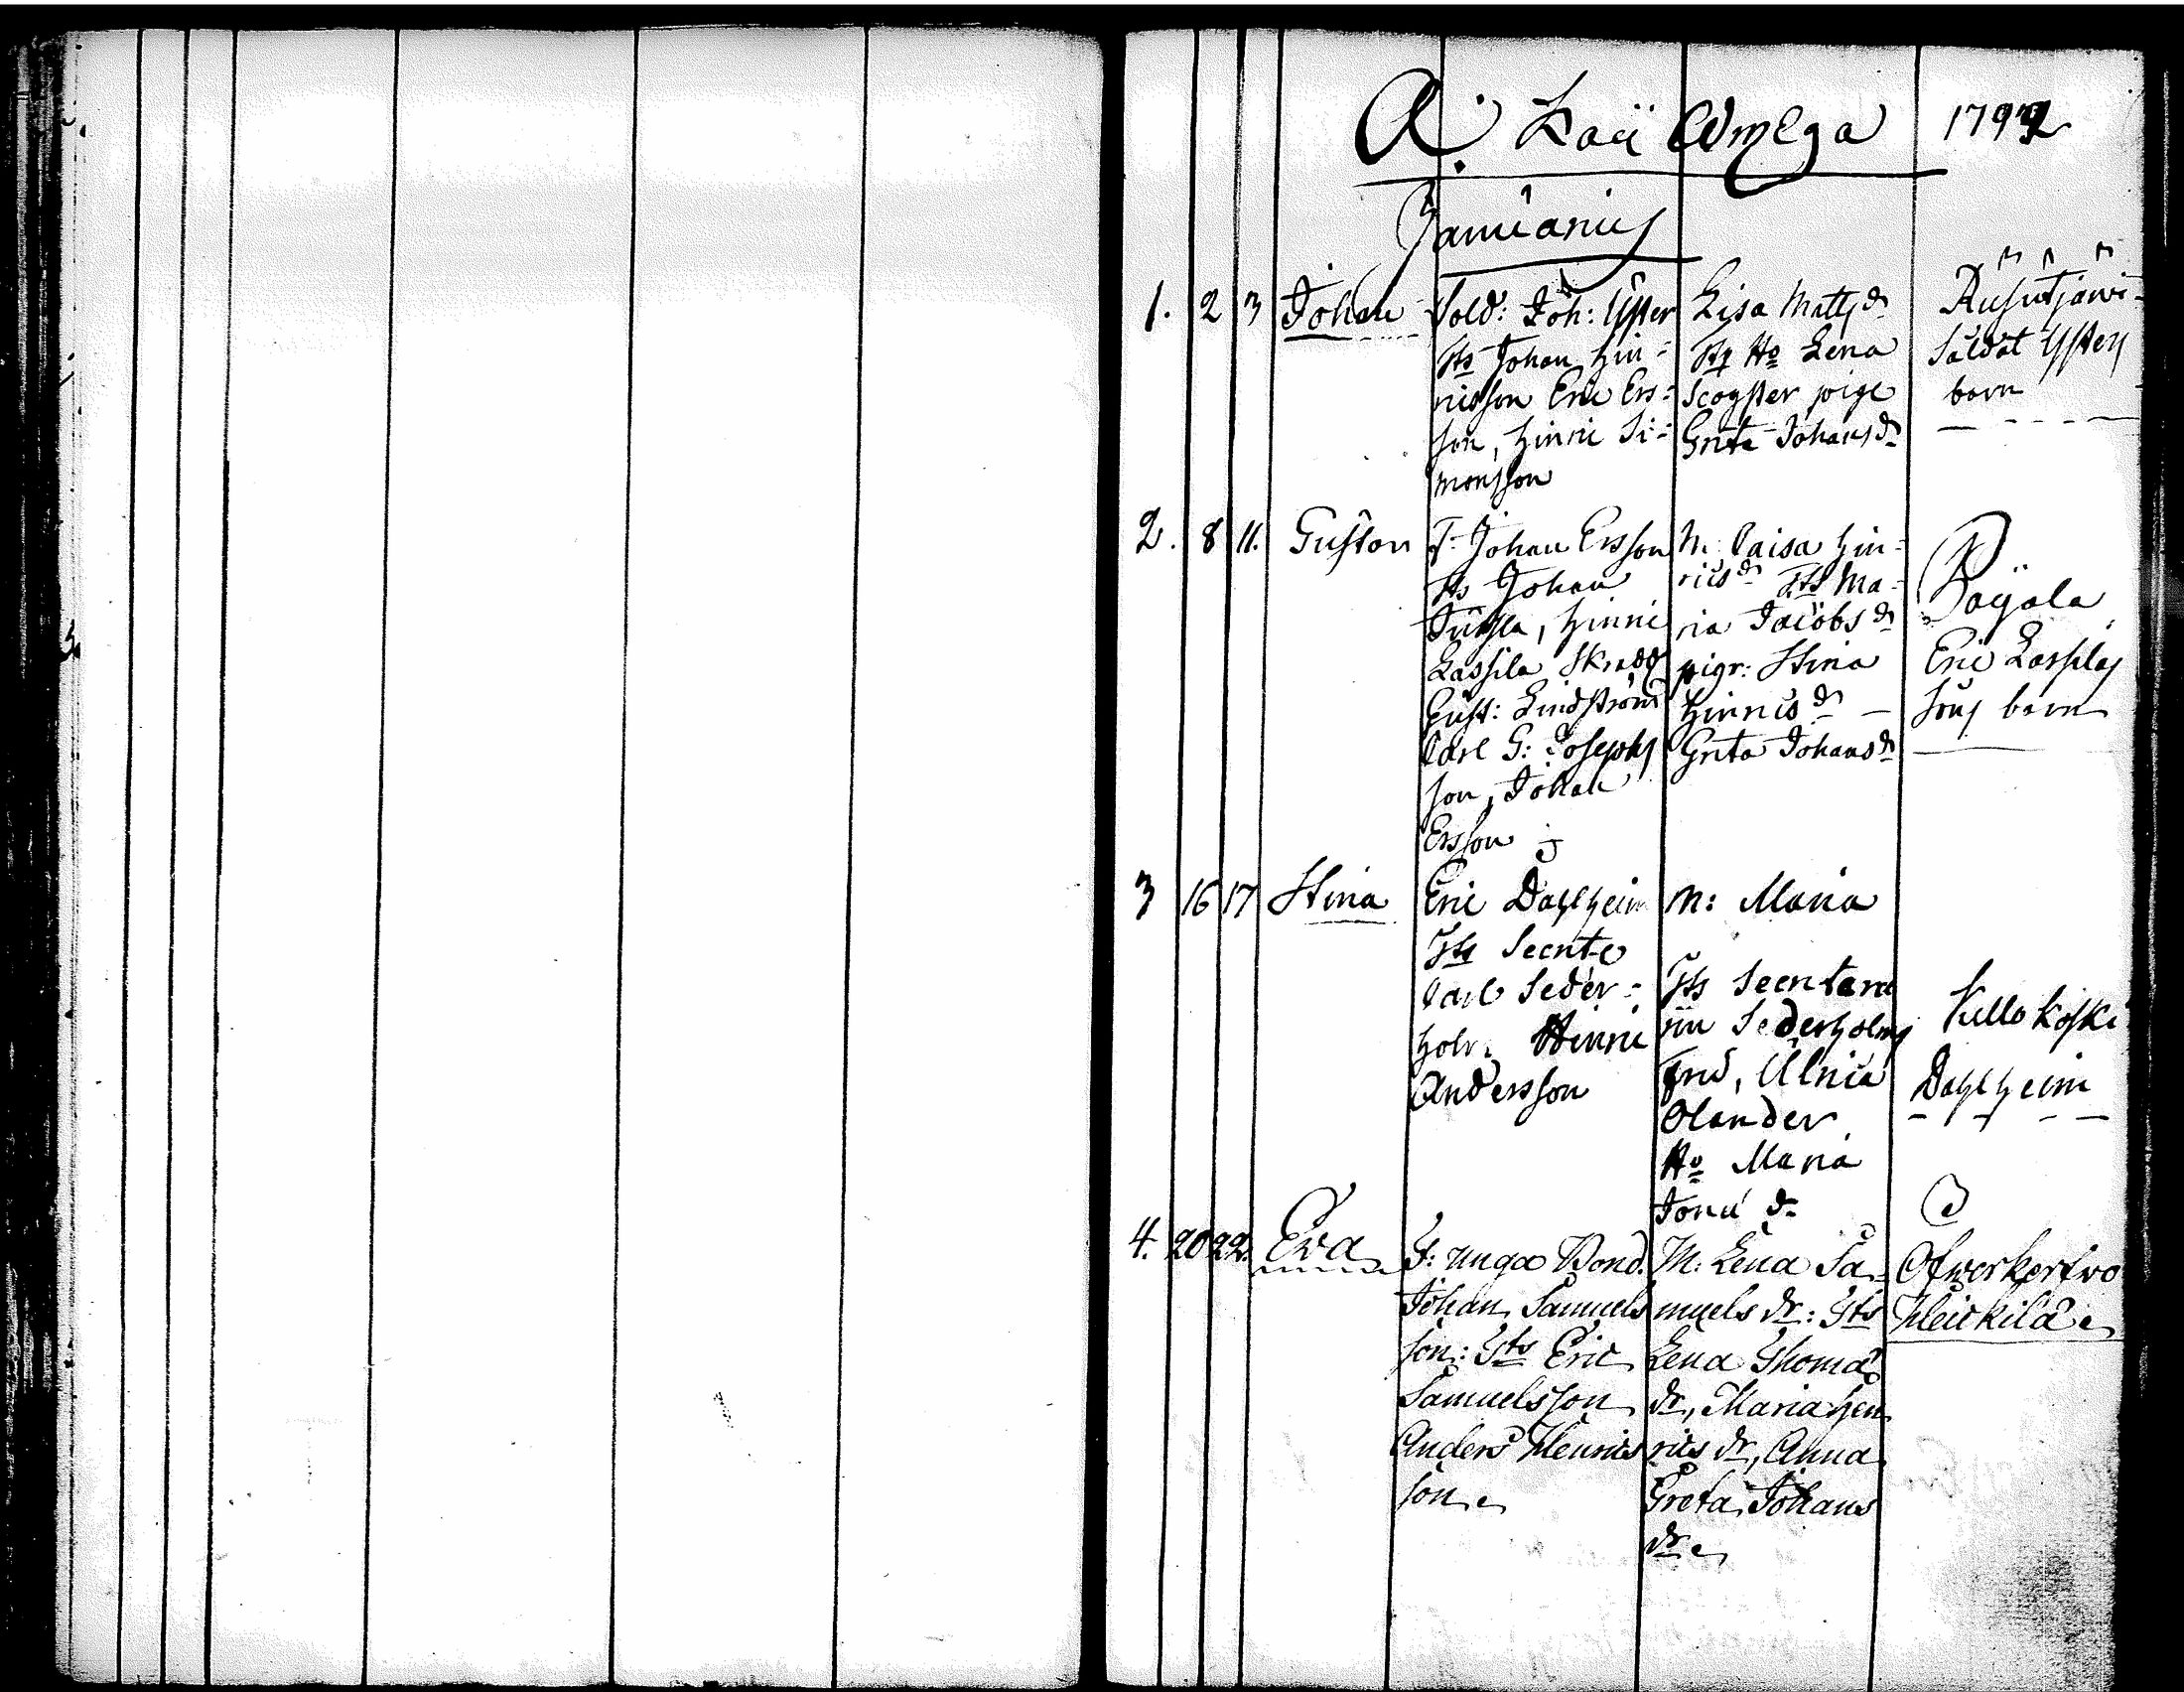 A: Kaü Omega 1792
Januarius
1. 2 3 Johan
Sold: Joh: Yster
Ts Johan Hin=
ricsson Eric Ers=
son, Hinric Si=
monsson
Lisa Matts dr
Ho Lena
Scogster pige
Greta Johans dr
Rusutjärwi
Saldat Ysters
barn
2. 8 11. Gustav
F: Johan Ersson
Ts Johan
Hinric
Lassila Skrädd
Gust: Lindström
Carl G: Josephs
son, Johan
Ersson
M: Caisa Hin=
rics dr Ts Ma=
ria Jacobs dr
pigr: Stina
Hinrics dr
Greta Johans dr
Pajala
Eric Lassilas
sons barn
3 16 17 Stina
Eric Dahlheim
Ts Secrete
Carl Seder=
holm Hinric
Andersson
M: Maria
Ts Secretera
rin Sederholms
fru, Ulrica
Olander
Ho Maria
Jonæ dr
Kellokoski
Dahlheim
4. 20 22. Eva
F: unga Bond.
Johan Samuels
son: Gts Eric
Samuelsson
Anders Henrics
son
M: Lena Sa=
muels dr: Gts
Lena Thomæ
dr, Maria Hen
rics dr, Anna
Greta Johans
dr
Ofwerkerfwo
Heickilä